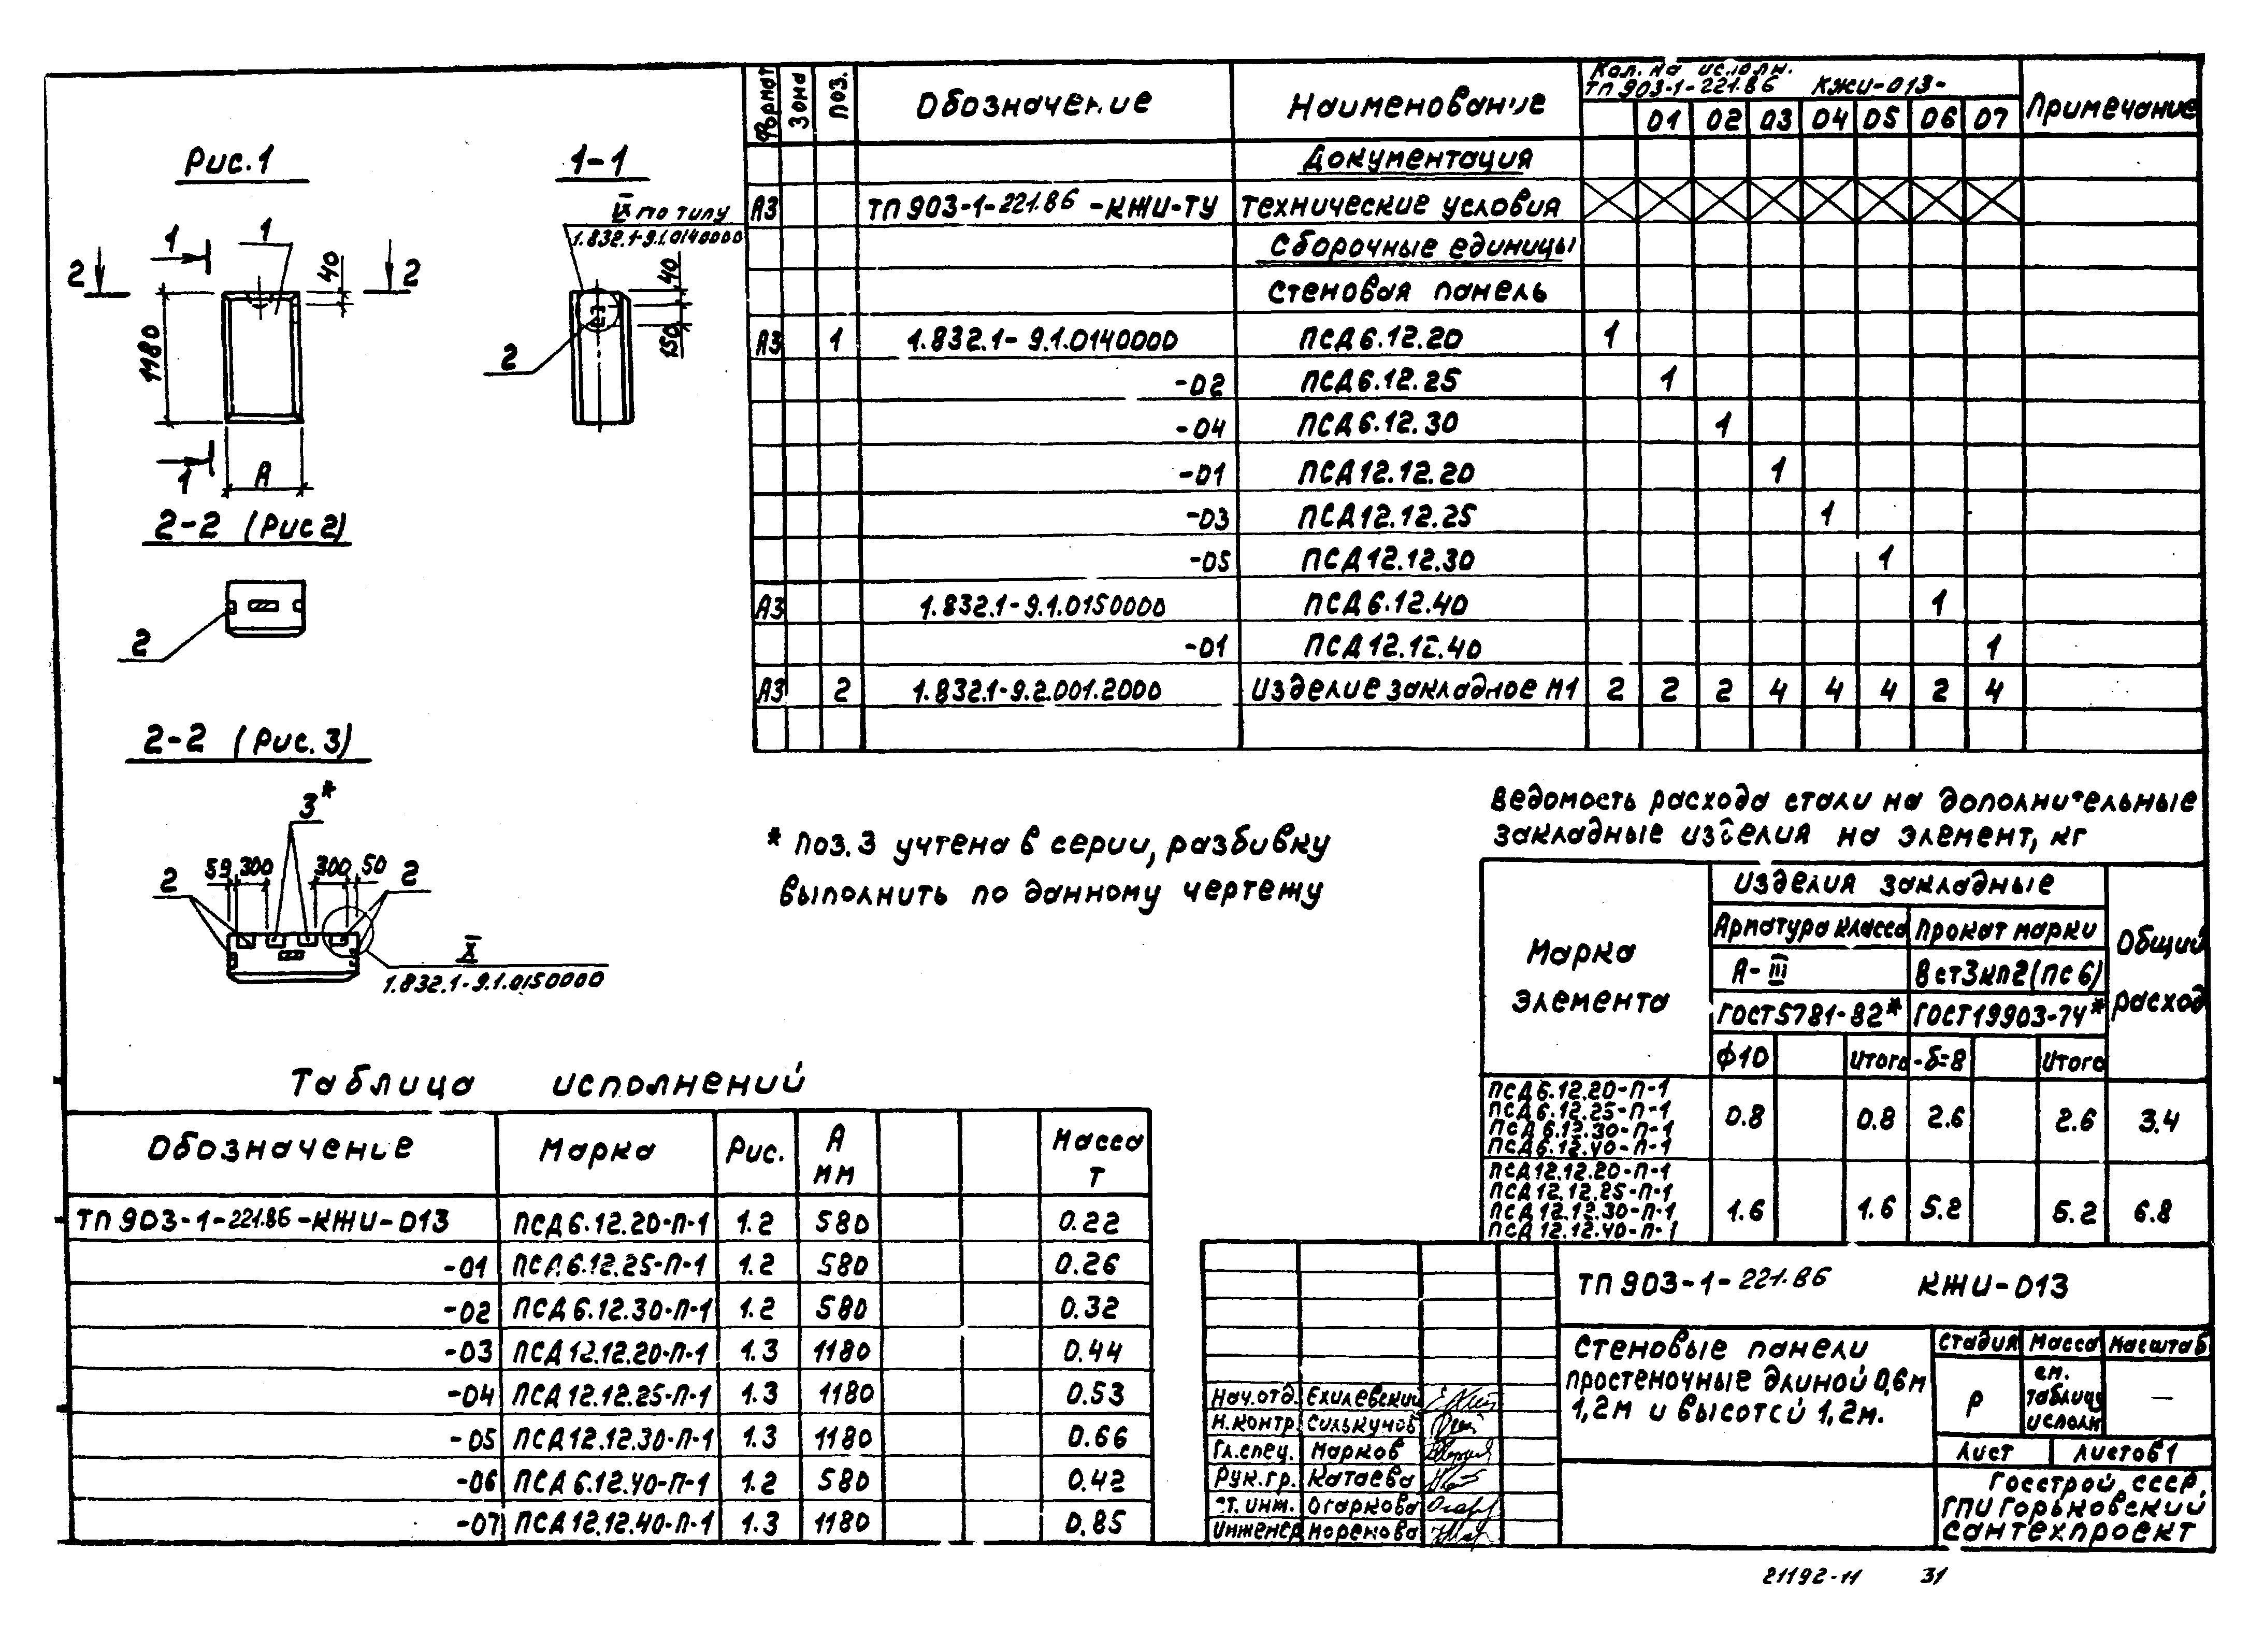 Рис.1
1-1
IX по типу
1.832.1-9.1.0140000
1
1
2
2
40
1180
1
А
40
150
2
2-2 (Рис 2)
2
2-2 (Рис. 3)
3*
59 300
300 50
2
2
X
1.832.1-9.1.0150000
Формат Зона Поз. Обозначение Наименование Кол. на исполн. Примечание
ТП 903-1-221.86 КЖИ-013-
01 02 03 04 05 06 07
Документация
А3 ТП 903-1-221.86-КЖИ-ТУ Технические условия
Сборочные единицы
Стеновая панель
А3 1 1.832.1-9.1.0140000 ПСД 6.12.20 1
-02 ПСД 6.12.25 1
-04 ПСД 6.12.30 1
-01 ПСД 12.12.20 1
-03 ПСД 12.12.25 1
-05 ПСД 12.12.30 1
А3 1.832.1-9.1.0150000 ПСД 6.12.40 1
-01 ПСД 12.12.40 1
А3 2 1.832.1-9.2.001.2000 Изделие закладное М1 2 2 2 4 4 4 2 4
* Поз. 3 учтена в серии, разбивку
выполнить по данному чертежу
Ведомость расхода стали на дополнительные
закладные изделия на элемент, кг
Марка элемента
Изделия закладные
Общий расход
Арматура класса Прокат марки
А-III Вст3кп2(пс6)
ГОСТ 5781-82* ГОСТ 19903-74*
Ф10 Итого -δ=8 Итого
ПСД 6.12.20-П-1
ПСД 6.12.25-П-1
ПСД 6.12.30-П-1
ПСД 6.12.40-П-1
0.8 0.8 2.6 2.6 3.4
ПСД 12.12.20-П-1
ПСД 12.12.25-П-1
ПСД 12.12.30-П-1
ПСД 12.12.40-П-1
1.6 1.6 5.2 5.2 6.8
Таблица исполнений
Обозначение Марка Рис. А мм Масса т
ТП 903-1-221.86-КЖИ-013 ПСД 6.12.20-П-1 1.2 580 0.22
-01 ПСД 6.12.25-П-1 1.2 580 0.26
-02 ПСД 6.12.30-П-1 1.2 580 0.32
-03 ПСД 12.12.20-П-1 1.3 1180 0.44
-04 ПСД 12.12.25-П-1 1.3 1180 0.53
-05 ПСД 12.12.30-П-1 1.3 1180 0.66
-06 ПСД 6.12.40-П-1 1.2 580 0.42
-07 ПСД 12.12.40-П-1 1.3 1180 0.85
ТП 903-1-221.86 КЖИ-013
Стеновые панели
простеночные длиной 0,6м
1,2м и высотой 1,2м.
Стадия Масса Масштаб
Р
см.
таблицу
исполн
—
Лист Листов 1
Госстрой СССР,
ГПИ Горьковский
Сантехпроект
Нач.отд. Ехилевский
Н.контр. Силькунов
Гл.спец. Марков
Рук.гр. Катаева
Ст. инж. Огаркова
Инженер Моренова
21192-11 31